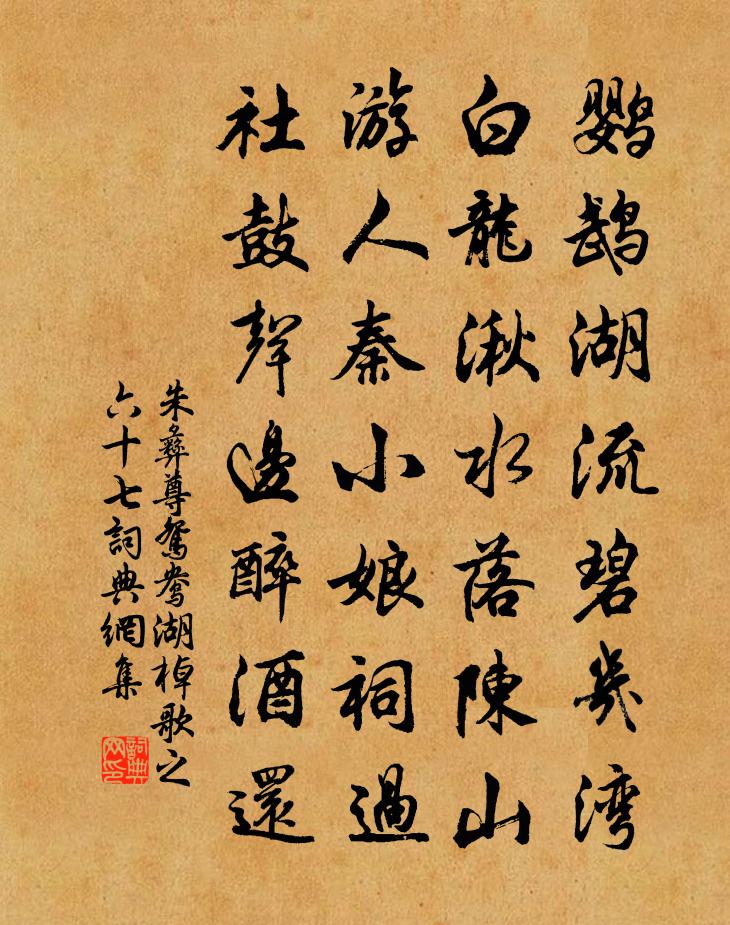 鹦鹉湖流碧几湾
白龍湫水落陳山
游人秦小娘祠過
社鼓聲邊醉酒還
朱彝尊鴛鴦湖棹歌之
六十七詞典網集
詞典網印